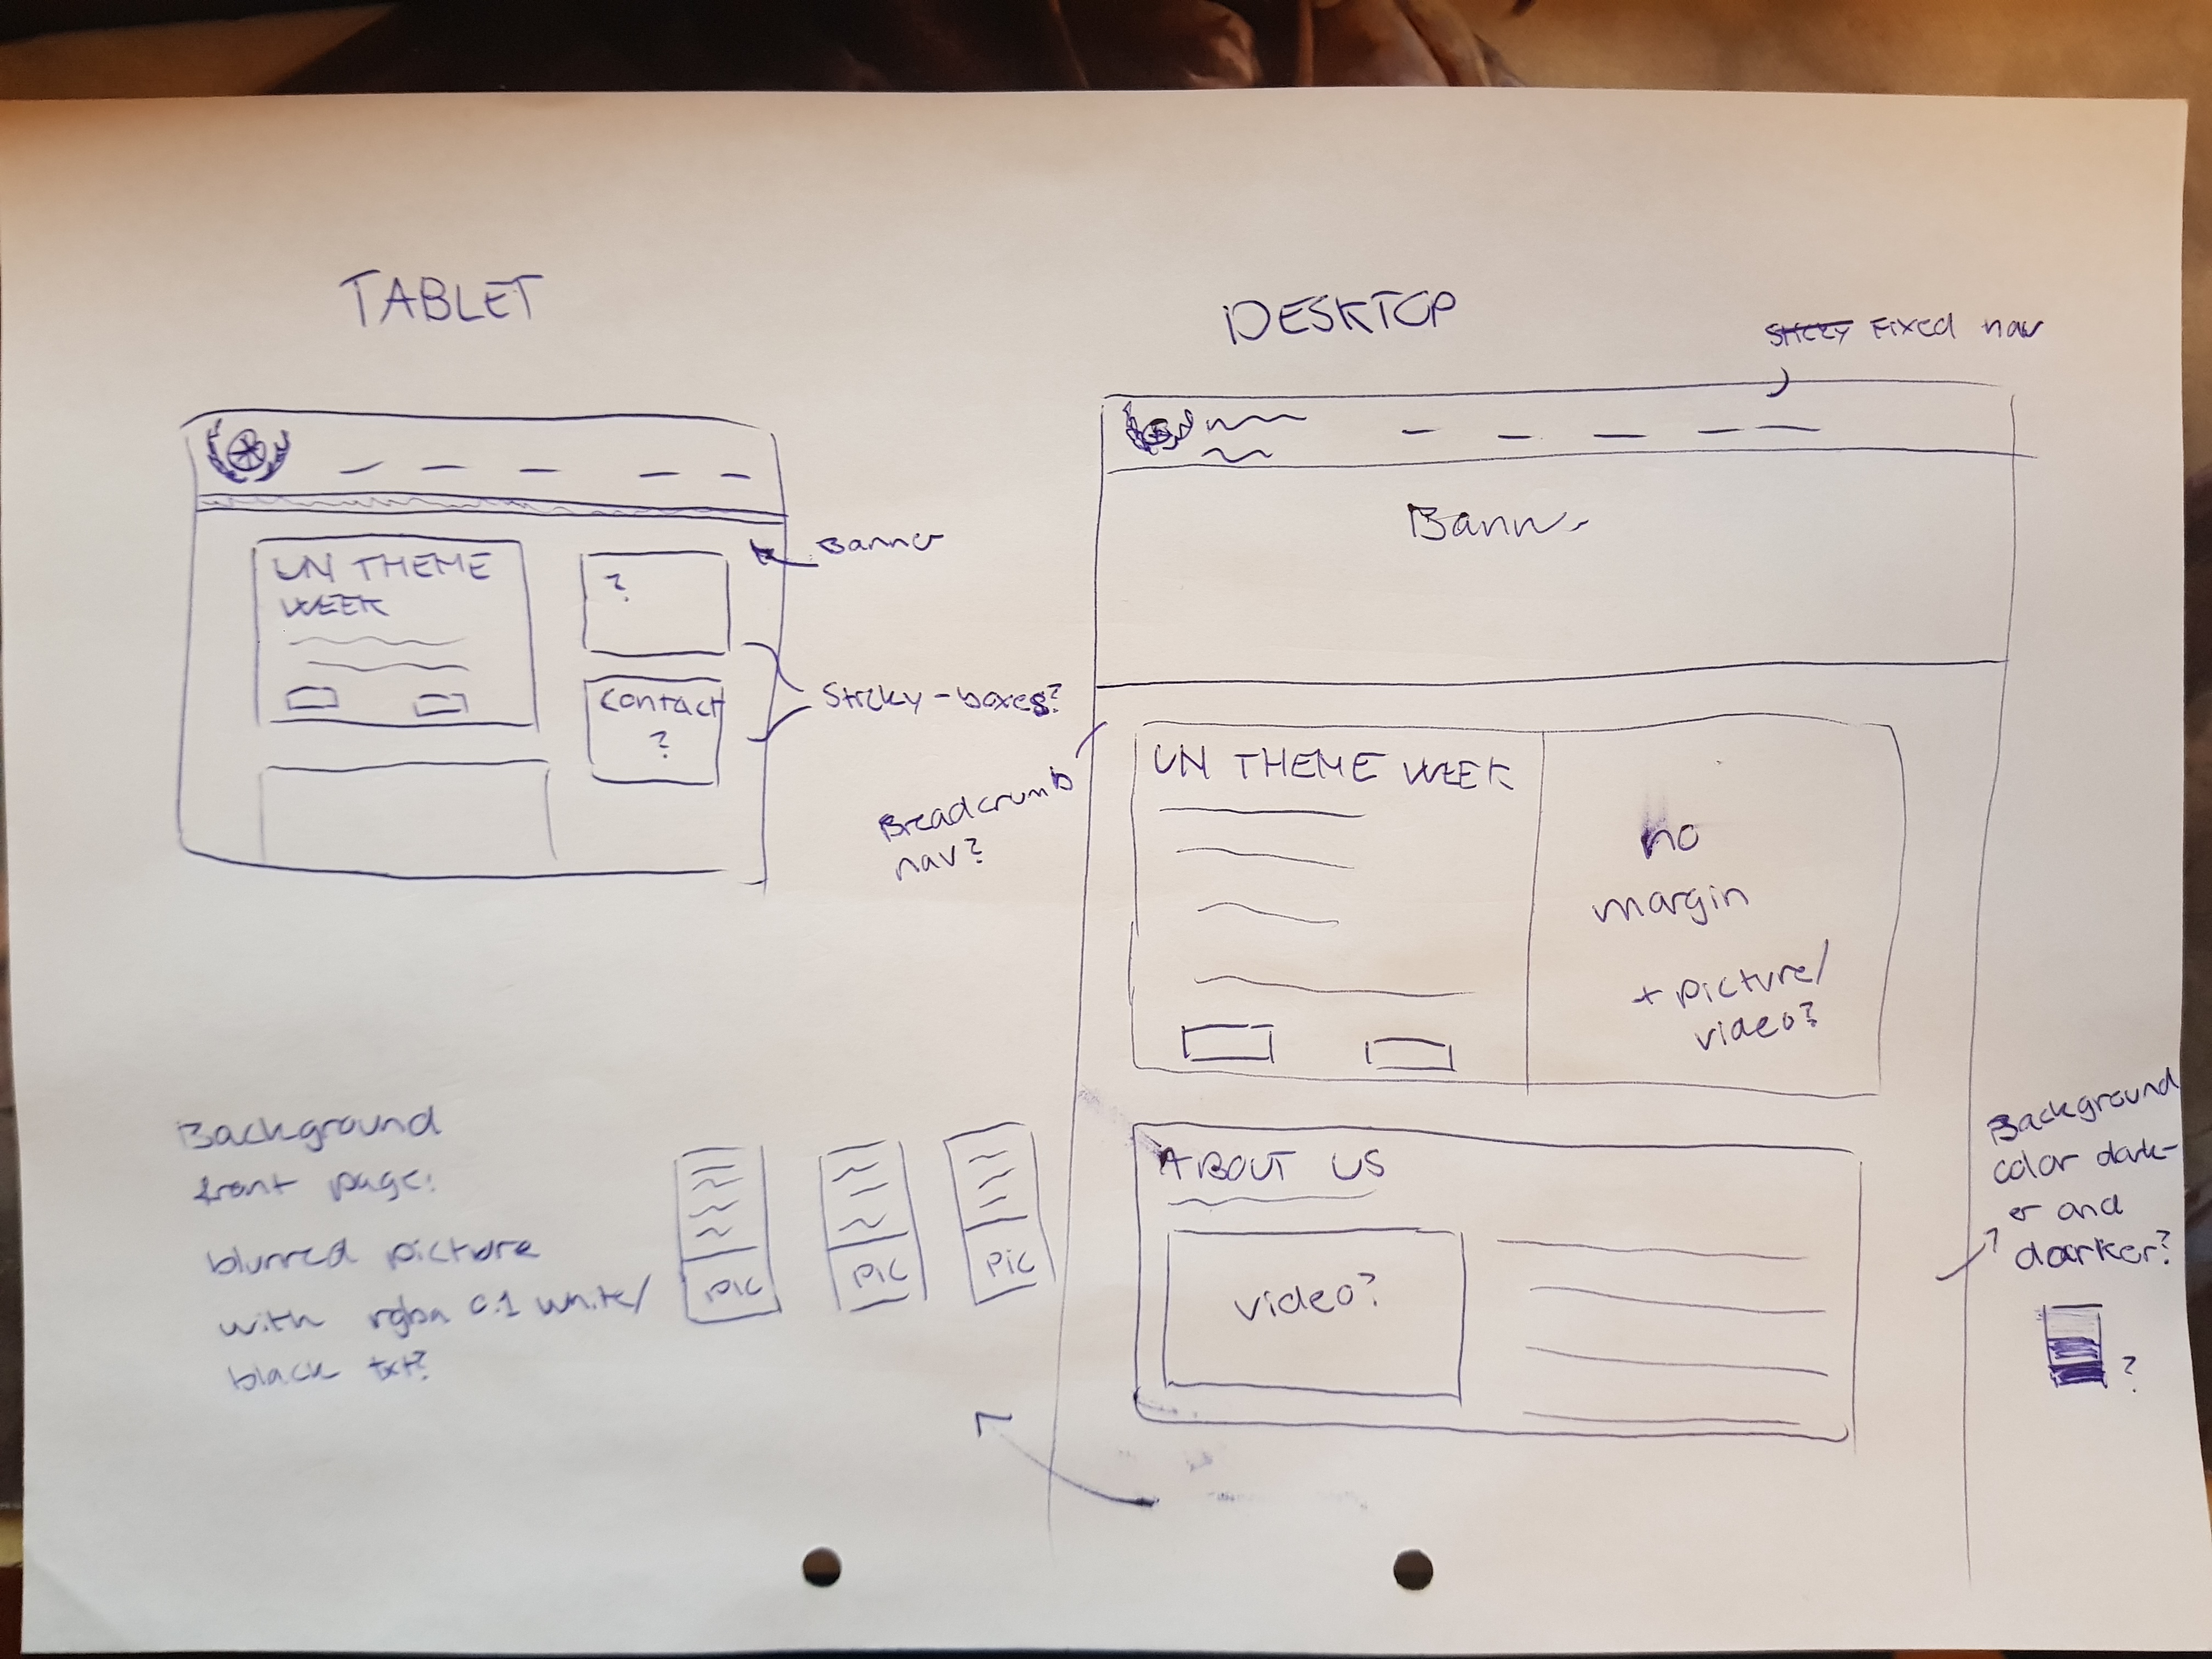 TABLET
UN THEME
WEEK
?
Contact
?
Banner
Sticky-boxes?
Breadcrumb
nav?
Background
front page:
blurred picture
with rgba 0.1 white/
black txt?
pic
pic
pic
DESKTOP
Sticky Fixed nav
Banner
UN THEME WEEK
no
margin
+ picture/
video?
ABOUT US
video?
Background
color dark-
er and
darker?
?